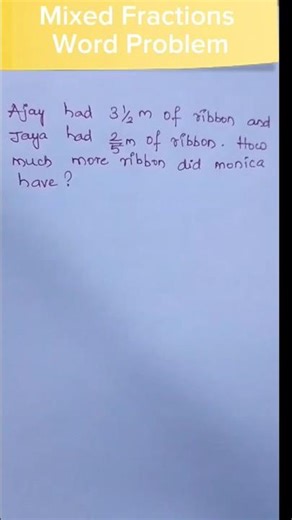 Mixed Fractions
Word Problem
Ajay had 3½ m of ribbon and
Jaya had 2/5 m of ribbon. How
much more ribbon did monica
have?